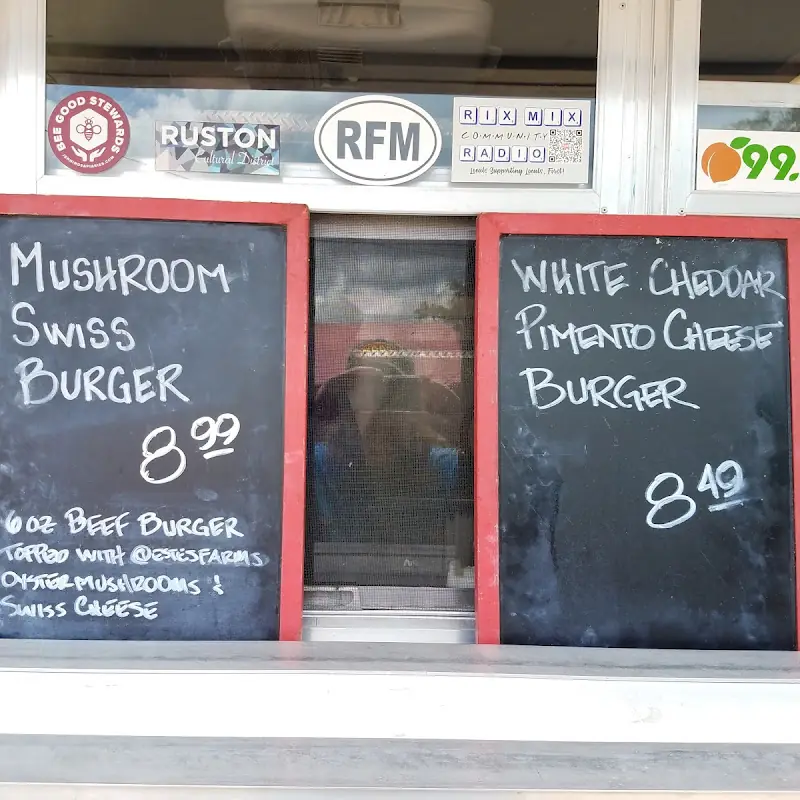 BEE GOOD STEWARDS
RUSTON
Cultural District
RFM
RIX MIX
COMMUNITY
RADIO
Locals Supporting Locals, First!
99.
MUSHROOM
SWISS
BURGER
8 99
6 OZ BEEF BURGER
TOPPED WITH @ESTESFARMS
OYSTER MUSHROOMS &
SWISS CHEESE
WHITE CHEDDAR
PIMENTO CHEESE
BURGER
8 49